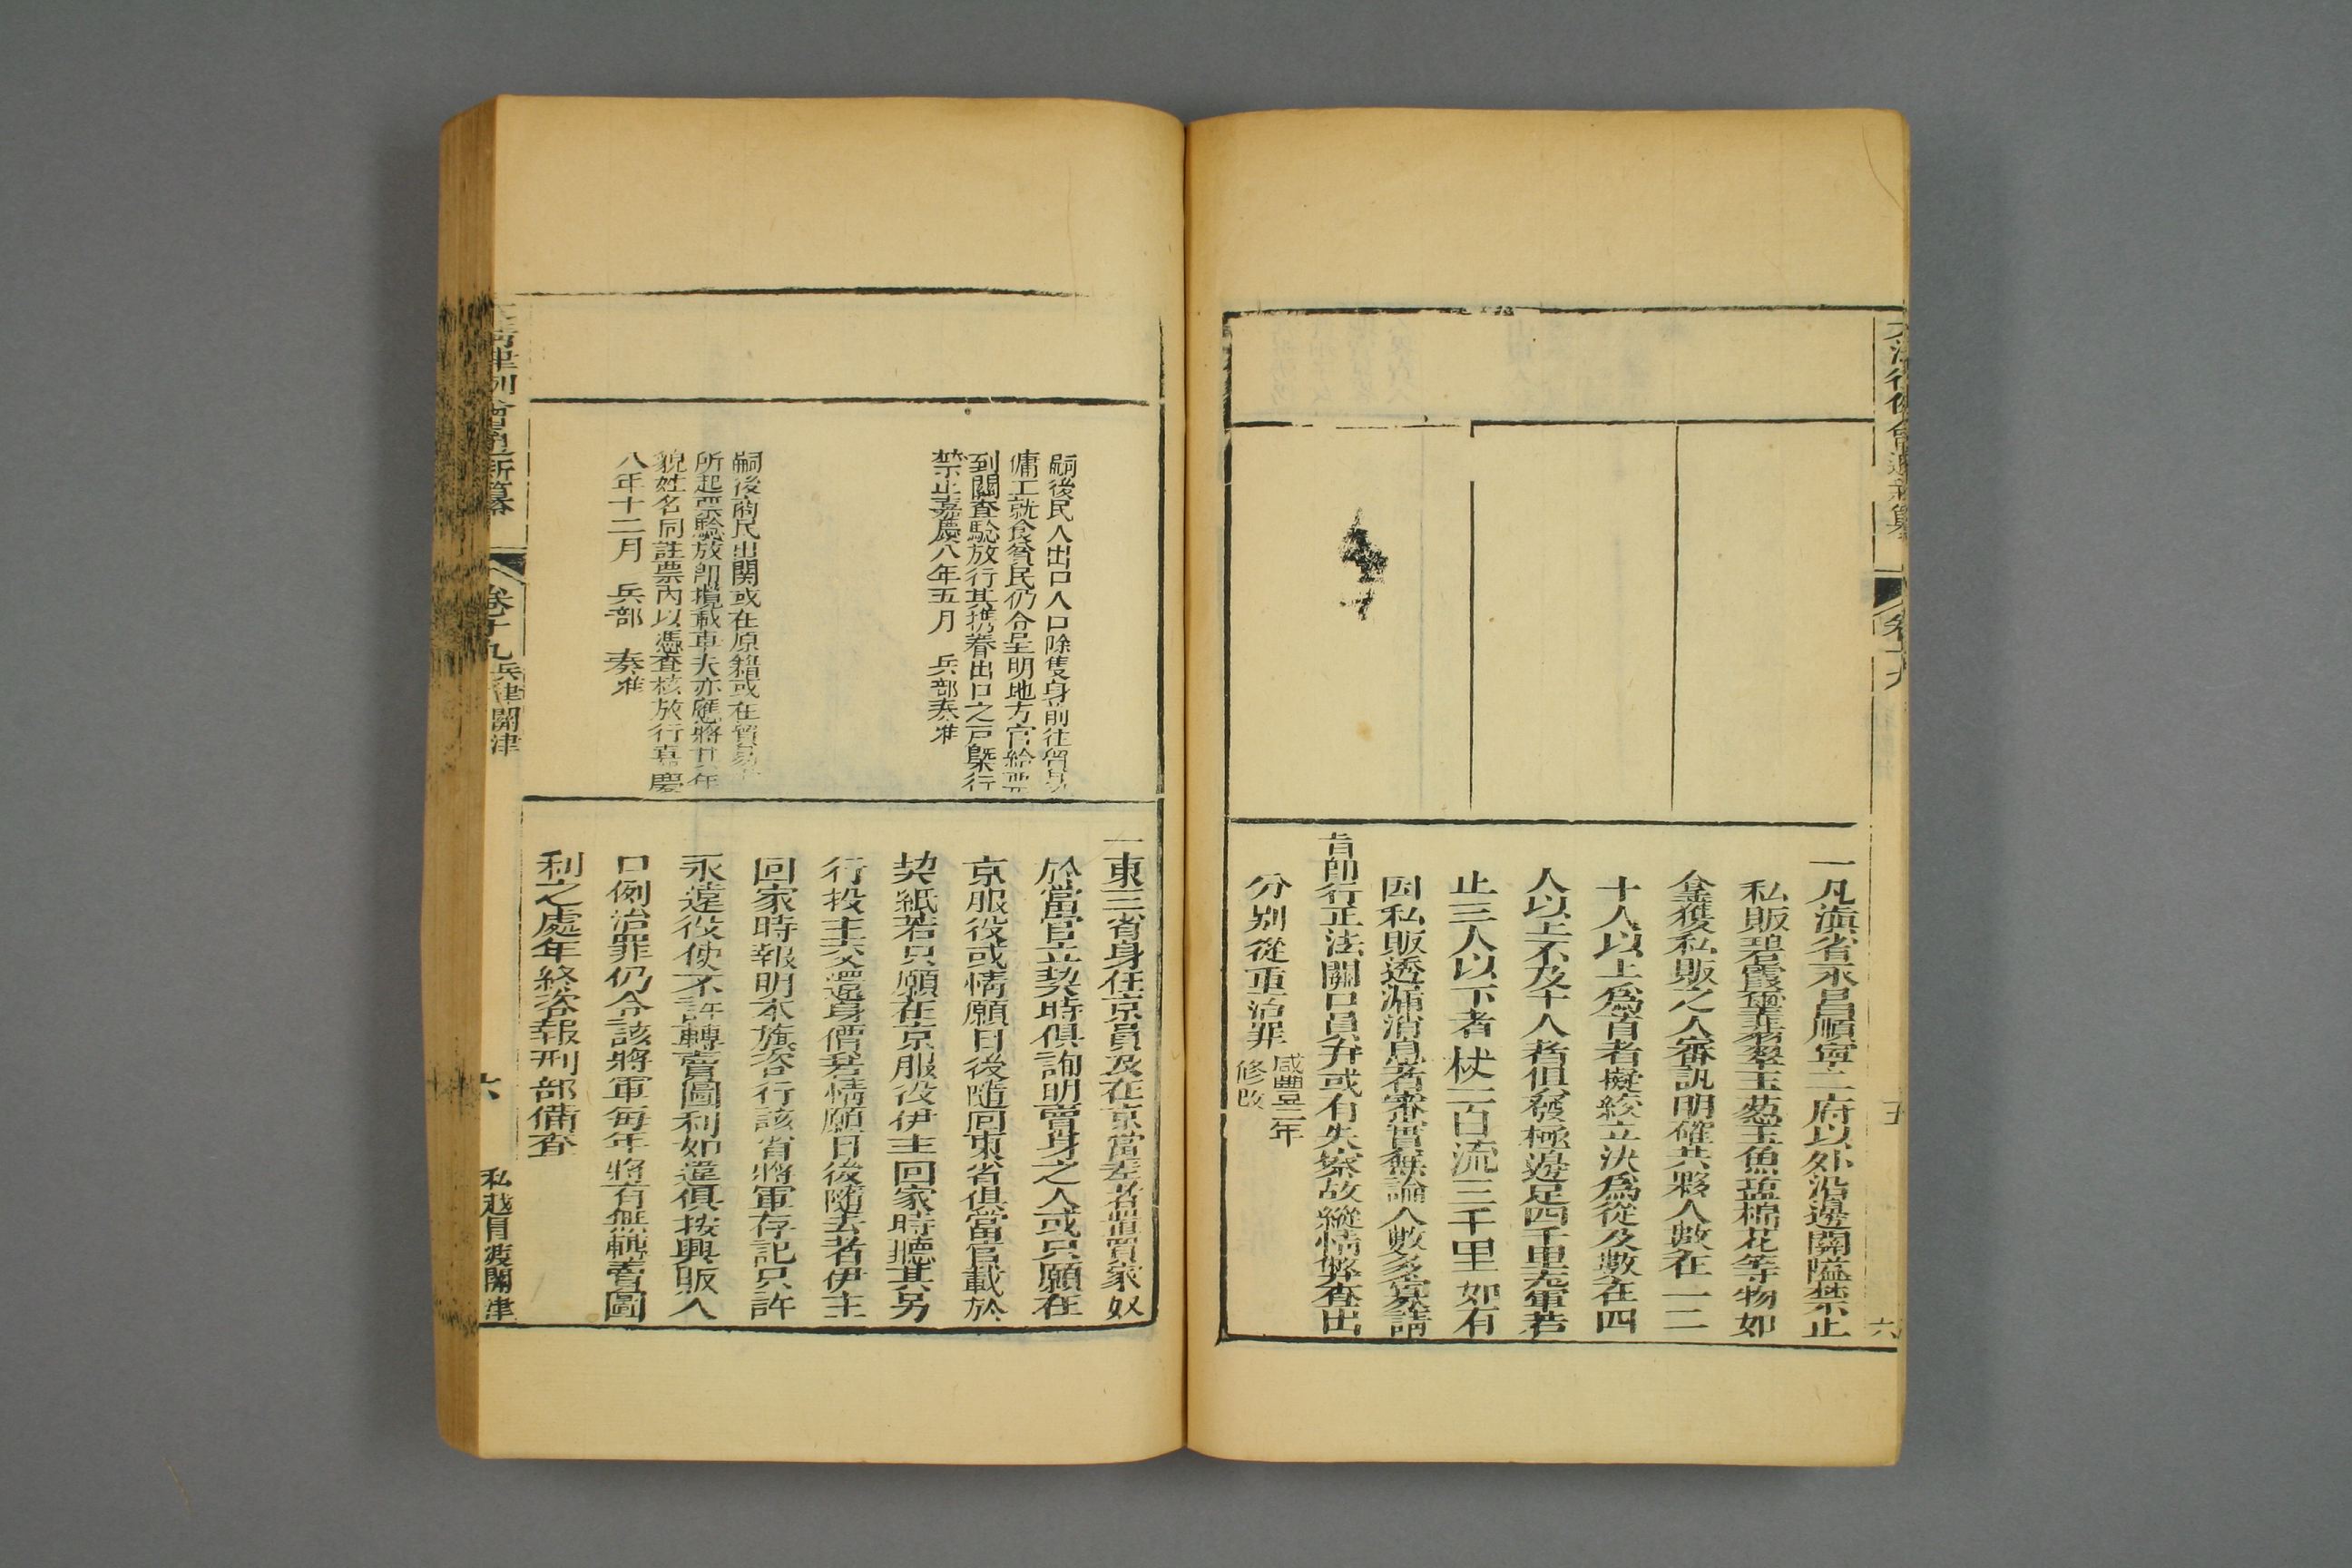 一凡滇省永昌順寧二府以外沿邊關隘禁止
私販碧霞璽翡翠玉葱玉魚盐棉花等物如
拿獲私販之人審訊明確共夥人數在一二
十人以上爲首者擬絞立決爲從及數在四
人以上不及十人者俱發極邊足四千里充軍若
止三人以下者杖一百流三千里如有
因私販透漏消息者審實無論人數多寡請
旨即行正法關口員弁或有失察故縱情弊查出
分别從重治罪
咸豐二年
修改
五
六
嗣後民人出口入口除隻身前往貿易
傭工就食貧民仍令呈明地方官給票
到關查驗放行其携眷出口之戶槩行
禁止嘉慶八年五月 兵部奏准
嗣後商民出関或在原籍或在貿易
所起票驗放即攬載車夫亦應將年
貌姓名同註票内以憑查核放行嘉慶
八年十二月 兵部 奏准
一東三省身任京員及在京當差者置買家奴
於當官立契時俱詢明賣身之人或只願在
京服役或情願日後隨回東省俱當官載於
契紙若只願在京服役伊主回家時聽其另
行投主交還身價若情願日後隨去者伊主
回家時報明本旗咨行該省將軍存記只許
永遠役使不許轉賣圖利如違俱按興販人
口例治罪仍令該將軍每年將有無轉賣圖
利之處年終咨報刑部備查
卷十九 兵律關津
六
私越冒渡關津